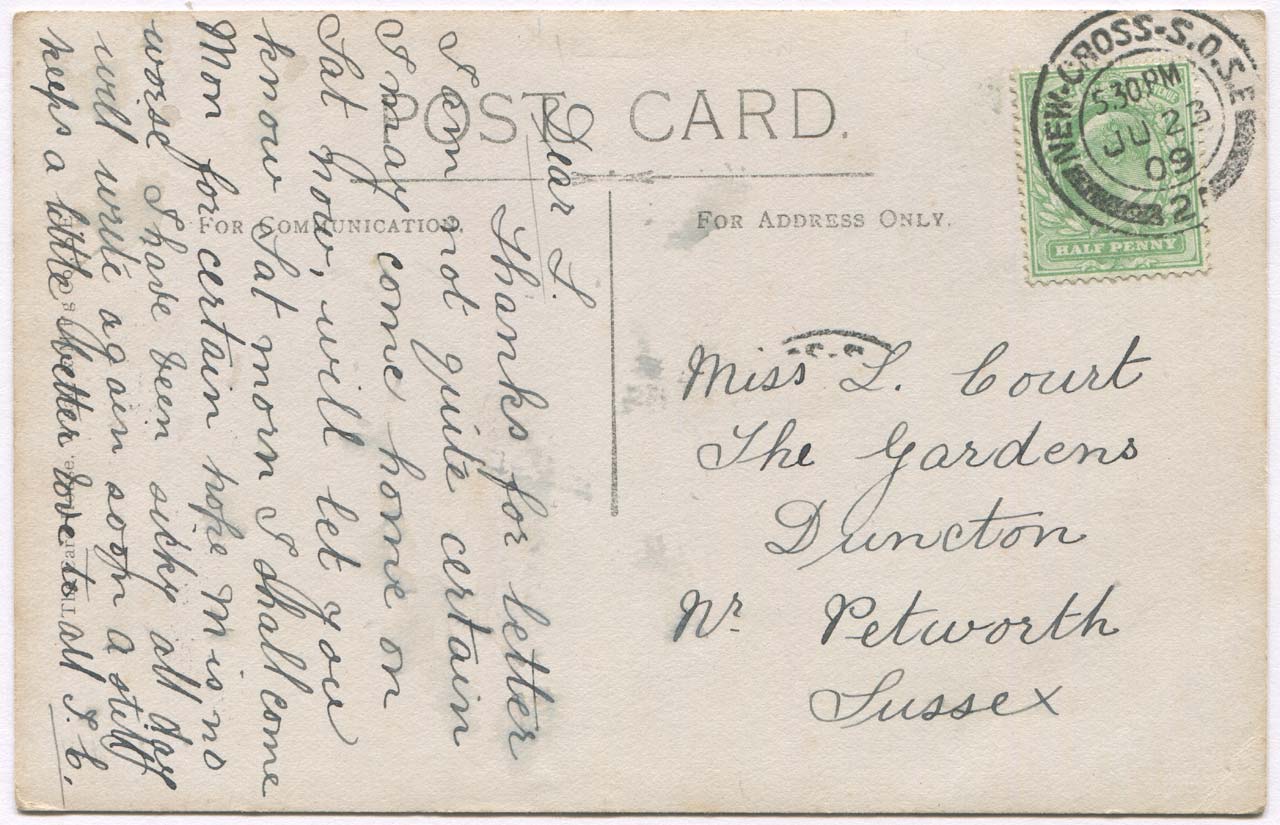 POST CARD.
FOR COMMUNICATION.
FOR ADDRESS ONLY.
NEW-CROSS-S.O.S.E
5.30 PM
JU 2
09
HALF PENNY
Dear L.
Thanks for letter
I am not quite certain
I may come home on
Sat now, will let you
know Sat morn I shall come
Mon for certain hope M is no
worse I have been sicky all day
will write again soon A still
keeps a little better love to all S. C.
Miss L. Court
The Gardens
Duncton
Nr. Petworth
Sussex